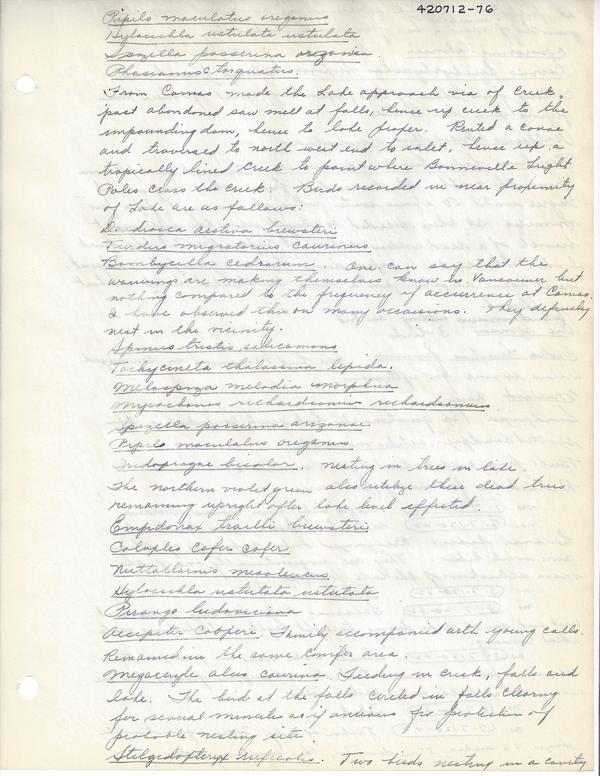 420712-76
Pipilo maculatus oregonus
Hylocichla ustulata ustulata
Spizella passerina arizonea
Phasianus C torquatus.
From Camas made the Lake approach via of Creek,
past abandoned saw mell at falls, hence up creek to the
impounding dam, hence to lake proper. Rented a canoe
and traversed to north west end to inlet, hence up a
tropically lined Creek to point where Bonneville Light
Poles cross the Creek. Birds recorded in near proximity
of Lake are as follows:
Dendroica aestiva brewsteri
Turdus migratorius caurinus
Bombycilla cedrorum. One can say that the
waxwings are making themselves know in Vancouver but
nothing compared to the frequency of accurrence at Camas.
I have observed this on many occasions. They definitely
nest in the vicinity.
Spinus tristis salicamans
Tachycineta thalassina lepida.
Melospiza melodia morphna
Myiochanes richardsonii richardsonius
Spizella passerina arizonae
Pipilo maculatus oreganus
Iridoprocne bicolor. nesting in trees in lake.
The northern violet green also utilize these dead trees
remaining upright after lake level effected.
Empidonax trailli brewsteri
Colaptes cafer cafer
Nuttallornis mesoleucus
Hylocichla ustulata ustulata
Piranga ludoviciana
Accipiter Cooperi. Family accompanied with young calls.
Remained in the same conifer area
Megaceryle alcus caurina. Feeding in creek, falls and
lake. The bird at the falls circled in falls clearing
for several minutes as if anxious for protection of
probable nesting site.
Stelgidopteryx ruficolis. Two birds nesting in a cavity